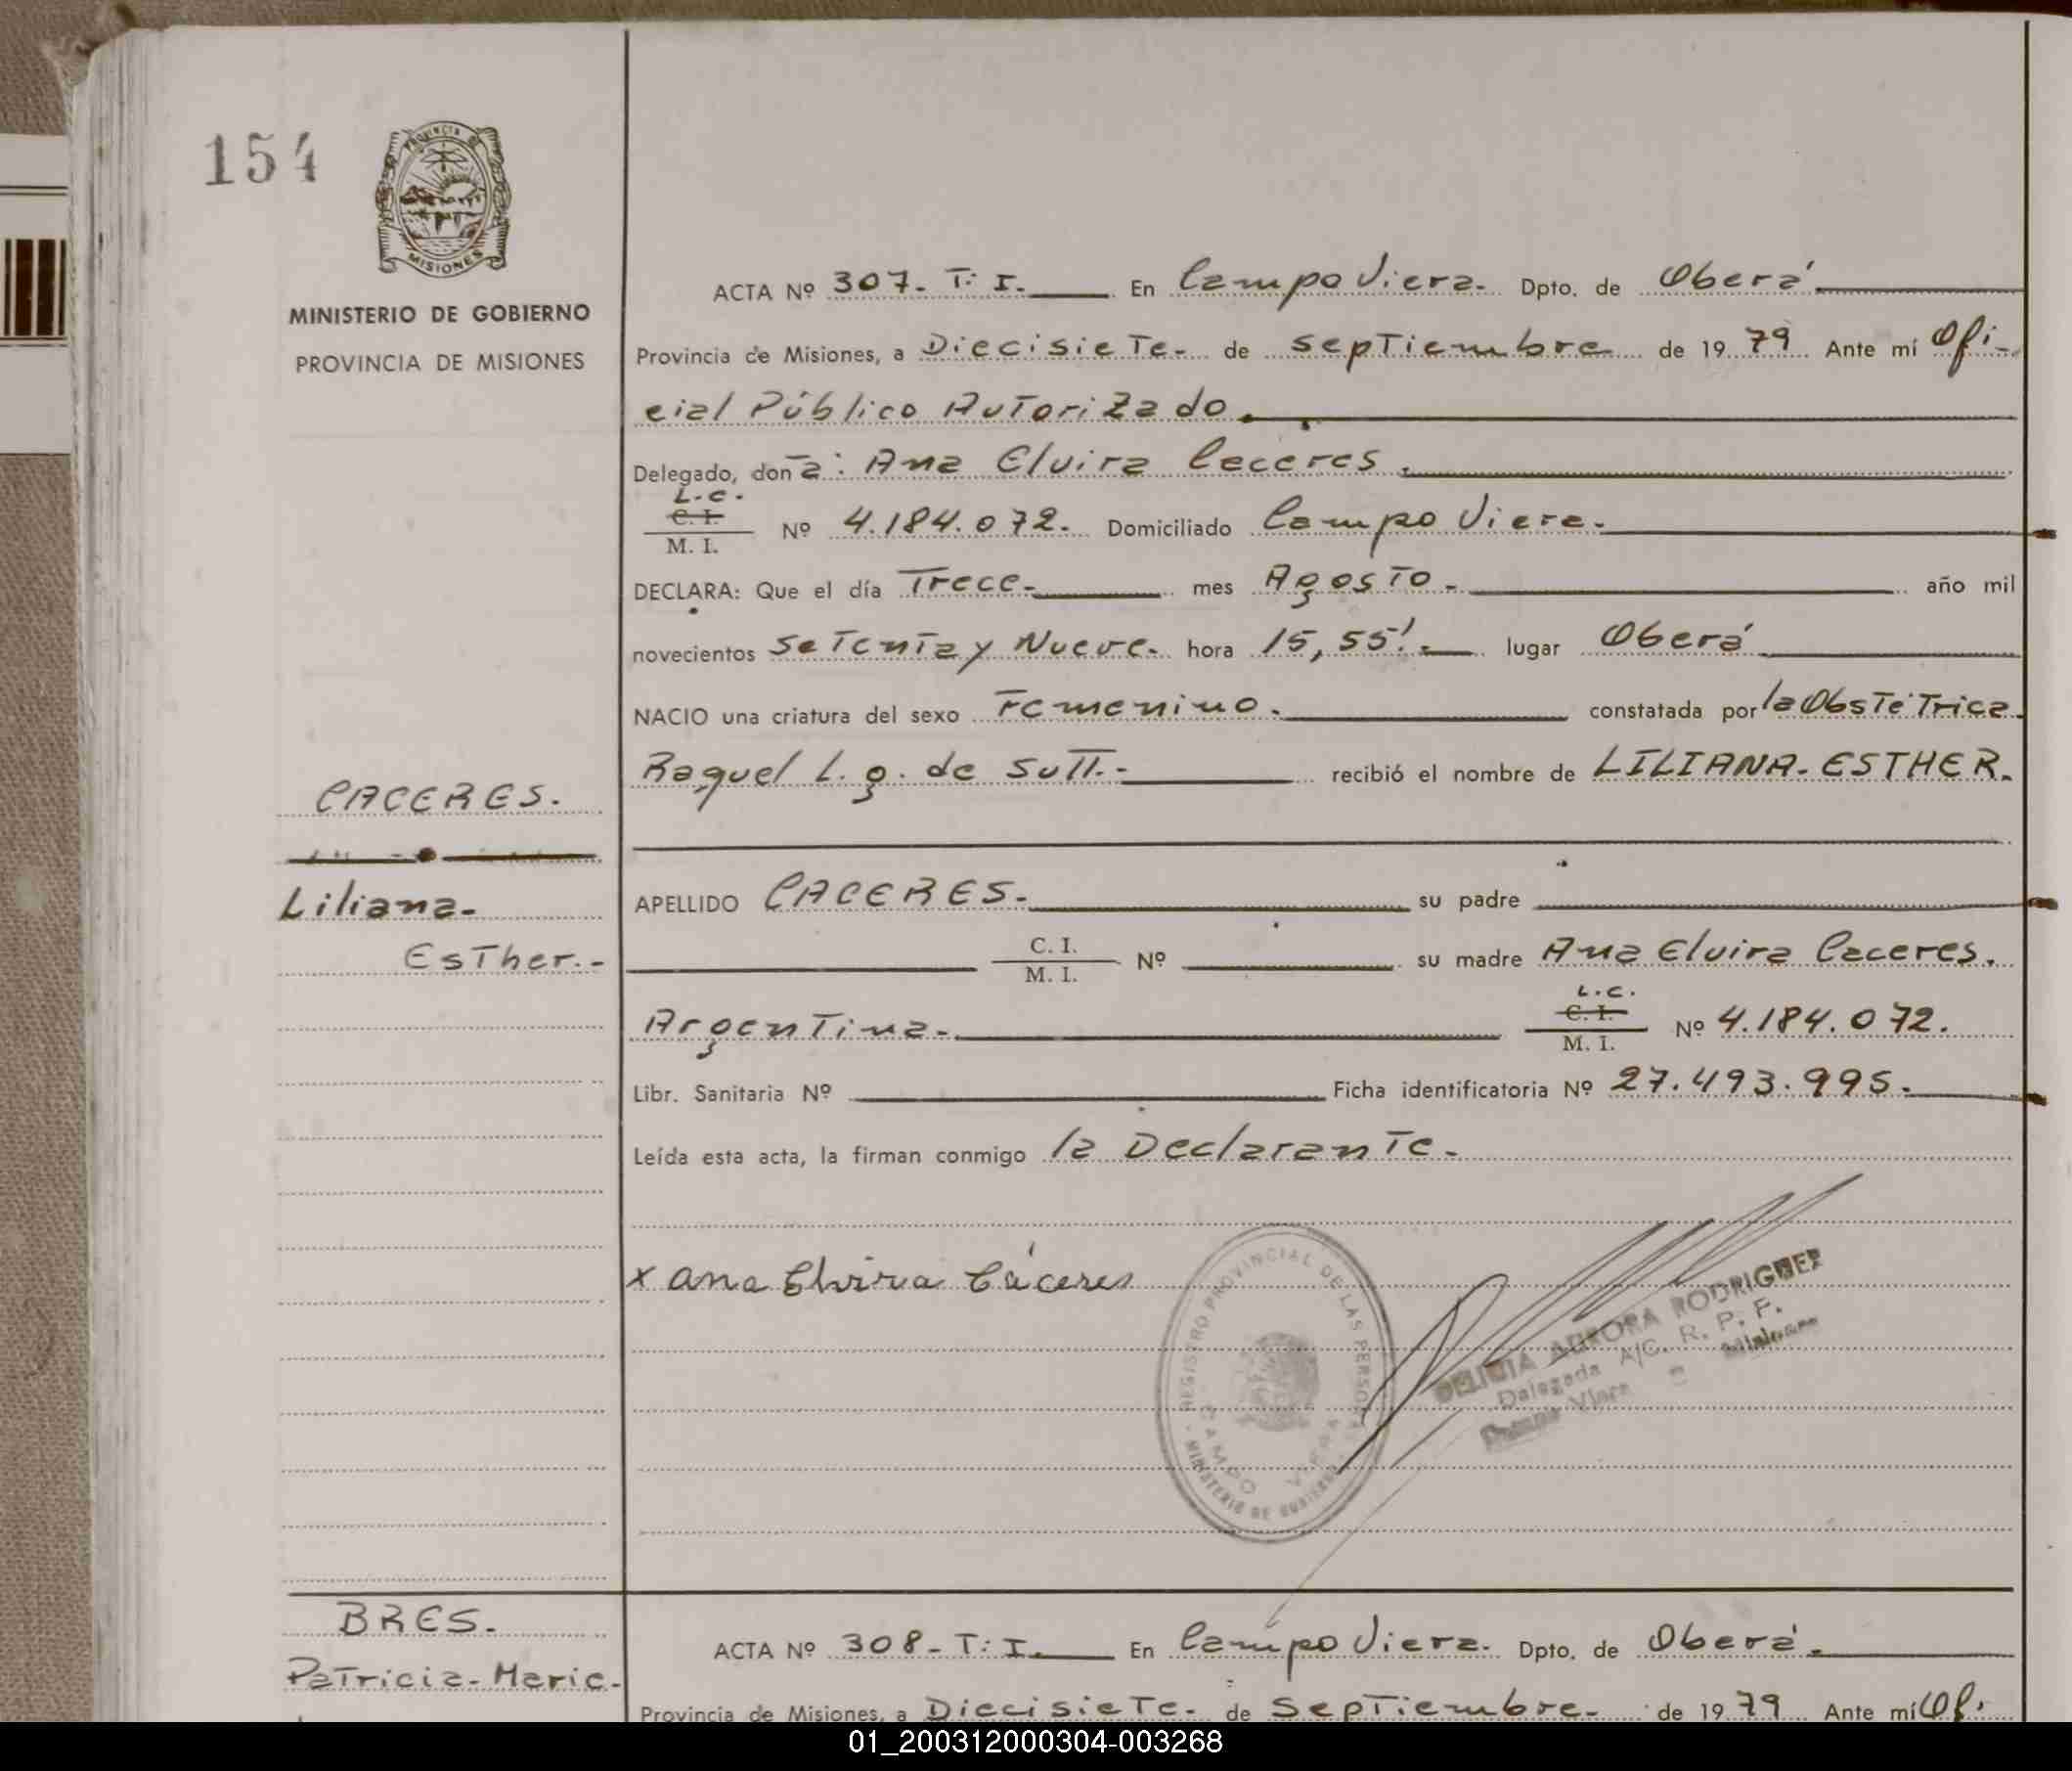 154
PROVINCIA DE
MISIONES
MINISTERIO DE GOBIERNO
PROVINCIA DE MISIONES
ACTA Nº 307. T: I. En Campo Viera. Dpto. de Oberá
Provincia de Misiones, a Diecisiete. de septiembre de 19 79 Ante mí Ofi-
cial Público Autorizado.
Delegado, don a: Ana Elvira Caceres.
L.C.
C. I.
M. I.
Nº 4.184.072. Domiciliado Campo Viera.
DECLARA: Que el día Trece. mes Agosto. año mil
novecientos setenta y Nueve. hora 15,55'. lugar Oberá
NACIO una criatura del sexo Femenino. constatada por la Obstétrica
Raquel L. g. de Sutt. recibió el nombre de LILIANA. ESTHER.
CACERES.
Liliana.
Esther.-
APELLIDO CACERES. su padre
C. I.
M. I.
Nº su madre Ana Elvira Caceres.
Argentina.
L.C.
C. I.
M. I.
Nº 4.184.072.
Libr. Sanitaria Nº Ficha identificatoria Nº 27.493.995.
Leída esta acta, la firman conmigo la Declarante.
x Ana Elvira Cáceres
REGISTRO PROVINCIAL DE LAS PERSONAS
CAMPO VIERA
MINISTERIO DE GOBIERNO
DELICIA AURORA RODRIGUEZ
Delegada A/C. R. P. F.
Campo Viera Misiones
BRES.
Patricia-Marie.
ACTA Nº 308-T: I. En Campo Viera. Dpto. de Oberá.
Provincia de Misiones, a Diecisiete. de Septiembre. de 19 79 Ante mí Ofi.
01_200312000304-003268